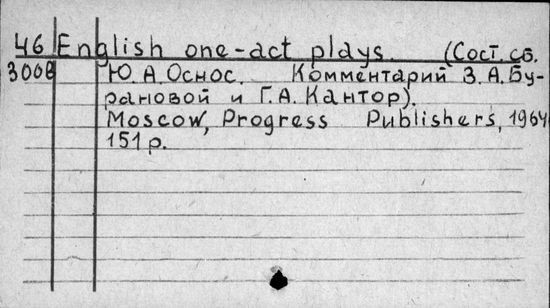 46 English one-act plays. (Сост. сб.
3006 Ю. А Оснос. Комментарий З. А. Бу-
рановой и Г. А. Кантор).
Moscow, Progress Publishers, 1964
151 p.